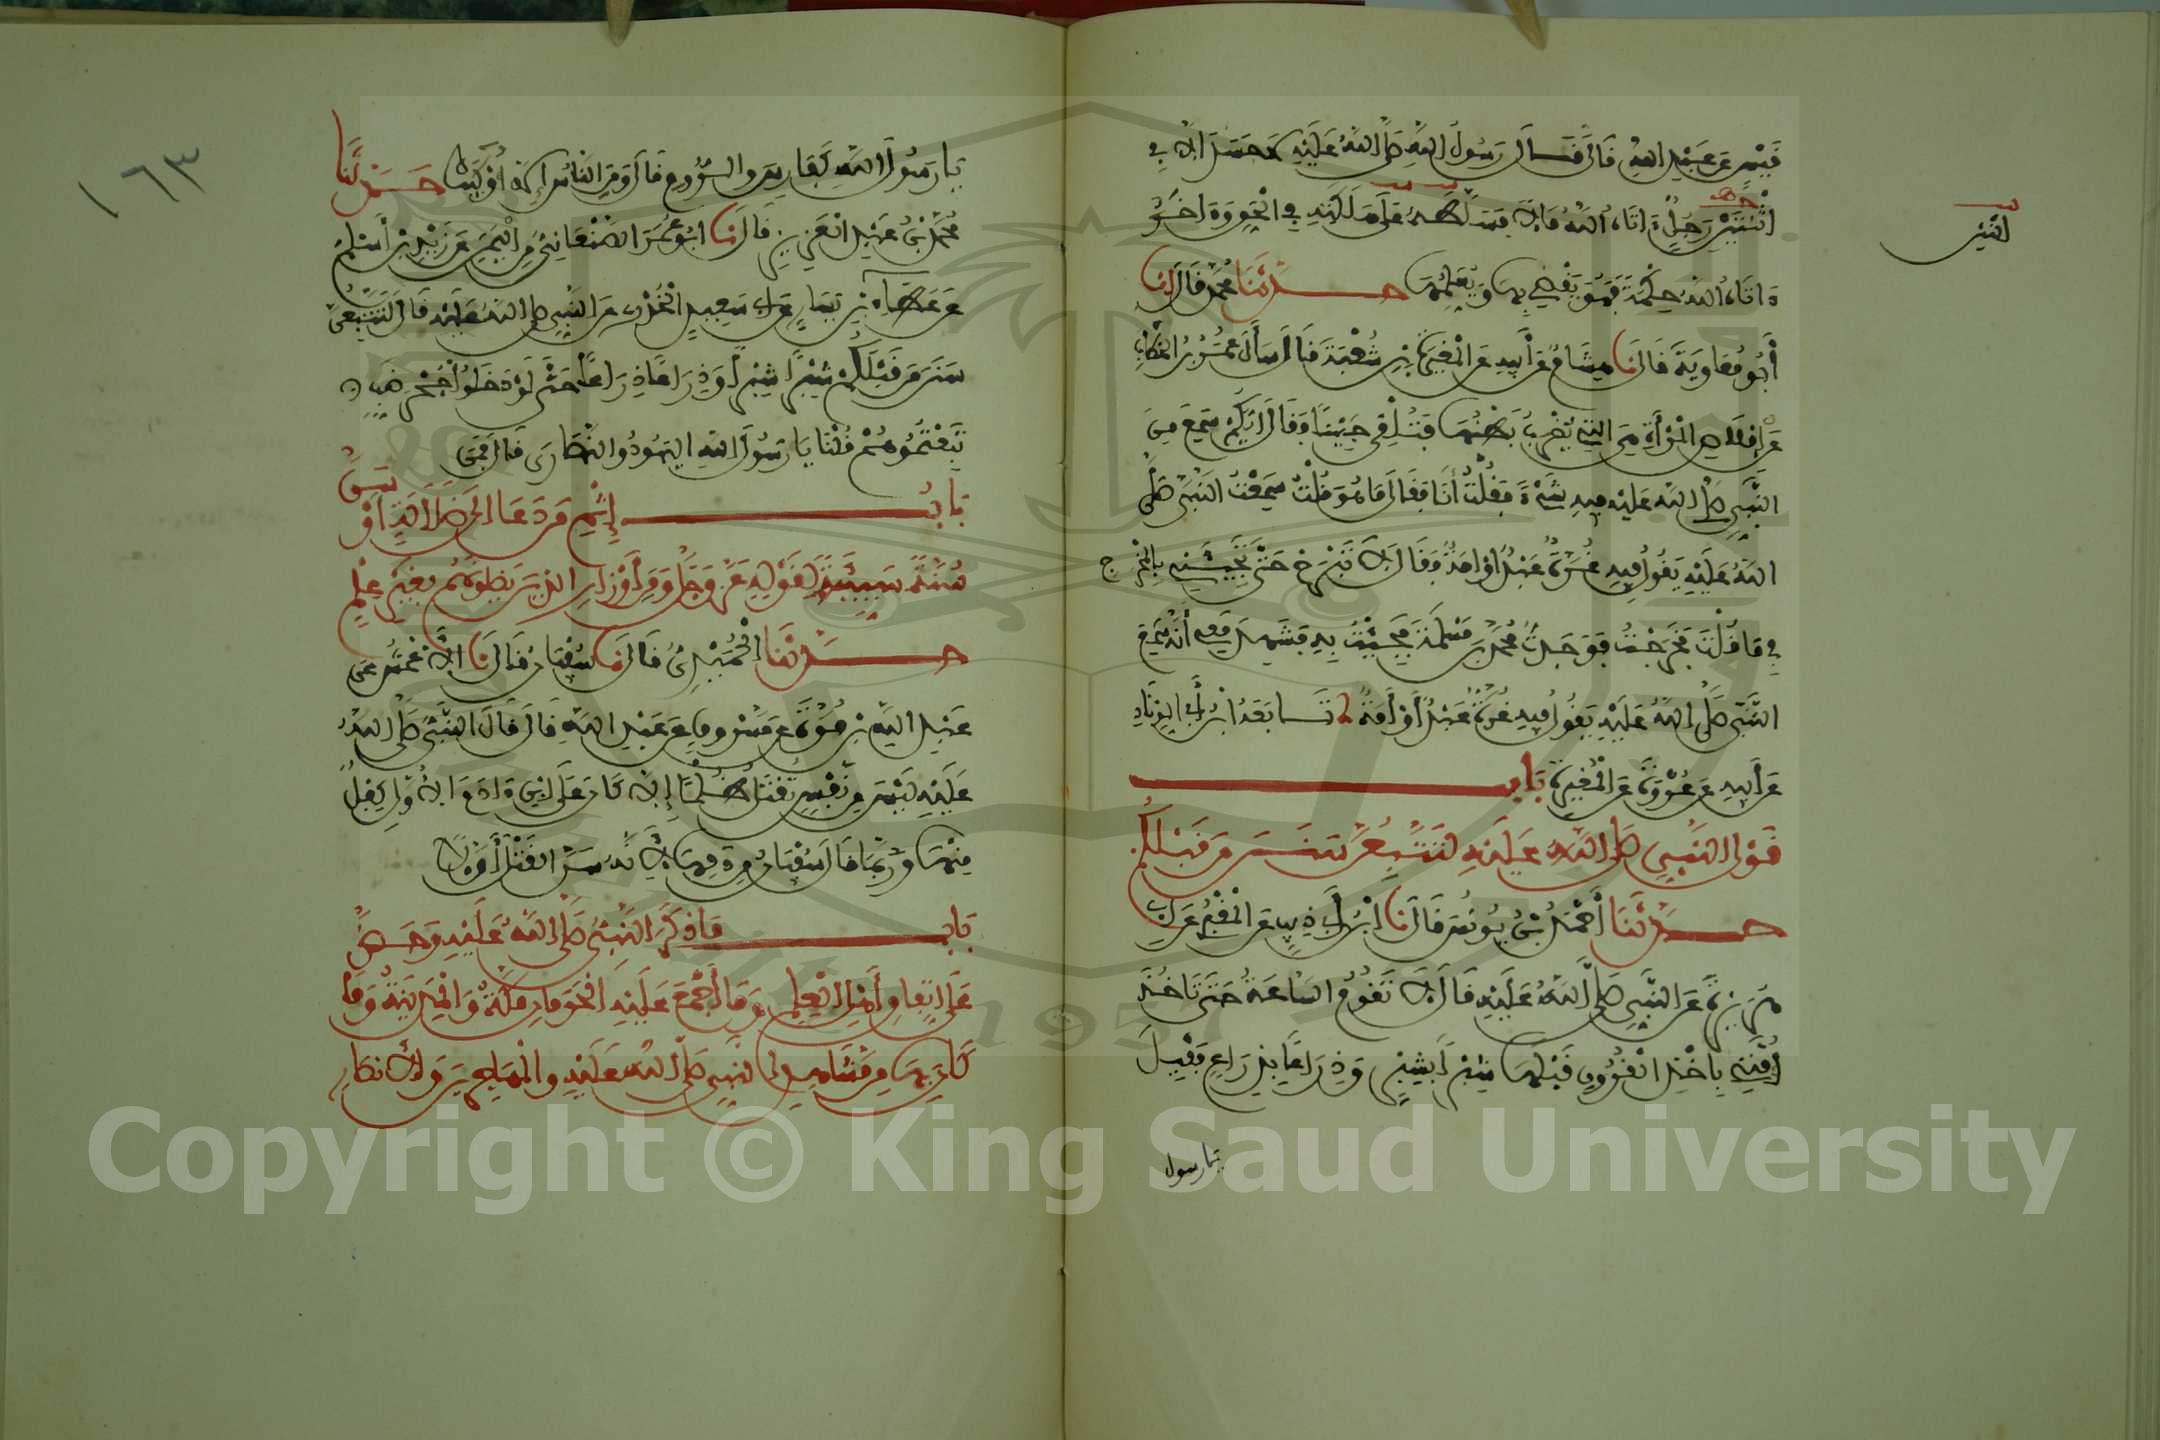 قيس عن عبد الله قال قال رسول الله صلى الله عليه لا حسد الا في
اثنتين رجل ءاتاه الله مالا فسلطه على هلكته في الحق وءاخر
اثنين
ءاتاه الله حكمة فهو يقضي بها ويعلمها حدثنا محمد قال انا
أبو معاوية قال نا هشام عن أبيه عن المغيرة بن شعبة قال سأل عمر بن الخطاب
عن إملاص المرأة هي التي يضرب بطنها فتلقي جنينا فقال أيكم سمع من
النبي صلى الله عليه فيه شيئا فقلت أنا فقال ما هو قلت سمعت النبي صلى
الله عليه يقول فيه غرة عبد أو أمة فقال لا تبرح حتى تجيئني بالمخرج
في ما قلت فخرجت فوجدت محمد بن مسلمة فجئت به فشهد معي أنه سمع
النبي صلى الله عليه يقول فيه غرة عبد أو أمة تابعه ابن أبي الزناد
عن أبيه عن عروة عن المغيرة باب
قول النبي صلى الله عليه لتتبعن سنن من قبلكم
حدثنا أحمد بن يونس قال نا ابن أبي ذيب عن المقبري عن أبي
هريرة عن النبي صلى الله عليه قال لا تقوم الساعة حتى تاخذ
أمتي باخذ القرون قبلها شبرا بشبر وذراعا بذراع فقيل
يا رسول
١٦٣
يا رسول الله كفارس والروم قال ومن الناس إلا أولئك حدثنا
محمد بن عبد العزيز قال نا ابو عمر الصنعاني من اليمن عن زيد بن أسلم
عن عطاء بن يسار عن أبي سعيد الخدري عن النبي صلى الله عليه قال لتتبعن
سنن من قبلكم شبرا شبرا وذراعا ذراعا حتى لو دخلوا جحر ضب
تبعتموهم قلنا يا رسول الله اليهود والنصارى قال فمن
باب إثم من دعا الى ضلالة أو سن
سنة سيئة لقوله عز وجل ومن أوزار الذين يضلونهم بغير علم
حدثنا الحميدي قال نا سفيان قال نا الاعمش عن
عبد الله بن مرة عن مسروق عن عبد الله قال قال النبي صلى الله
عليه ليس من نفس تقتل ظلما إلا كان على ابن ءادم الاول كفل
منها وربما قال سفيان من دمها لأنه سن القتل أولا
باب ما ذكر النبي صلى الله عليه وحض
على اتفاق أهل العلم وما أجمع عليه الحرمان مكة والمدينة وما
كان بها من مشاهد النبي صلى الله عليه والمهاجرين والانصار
Copyright © King Saud University
1957